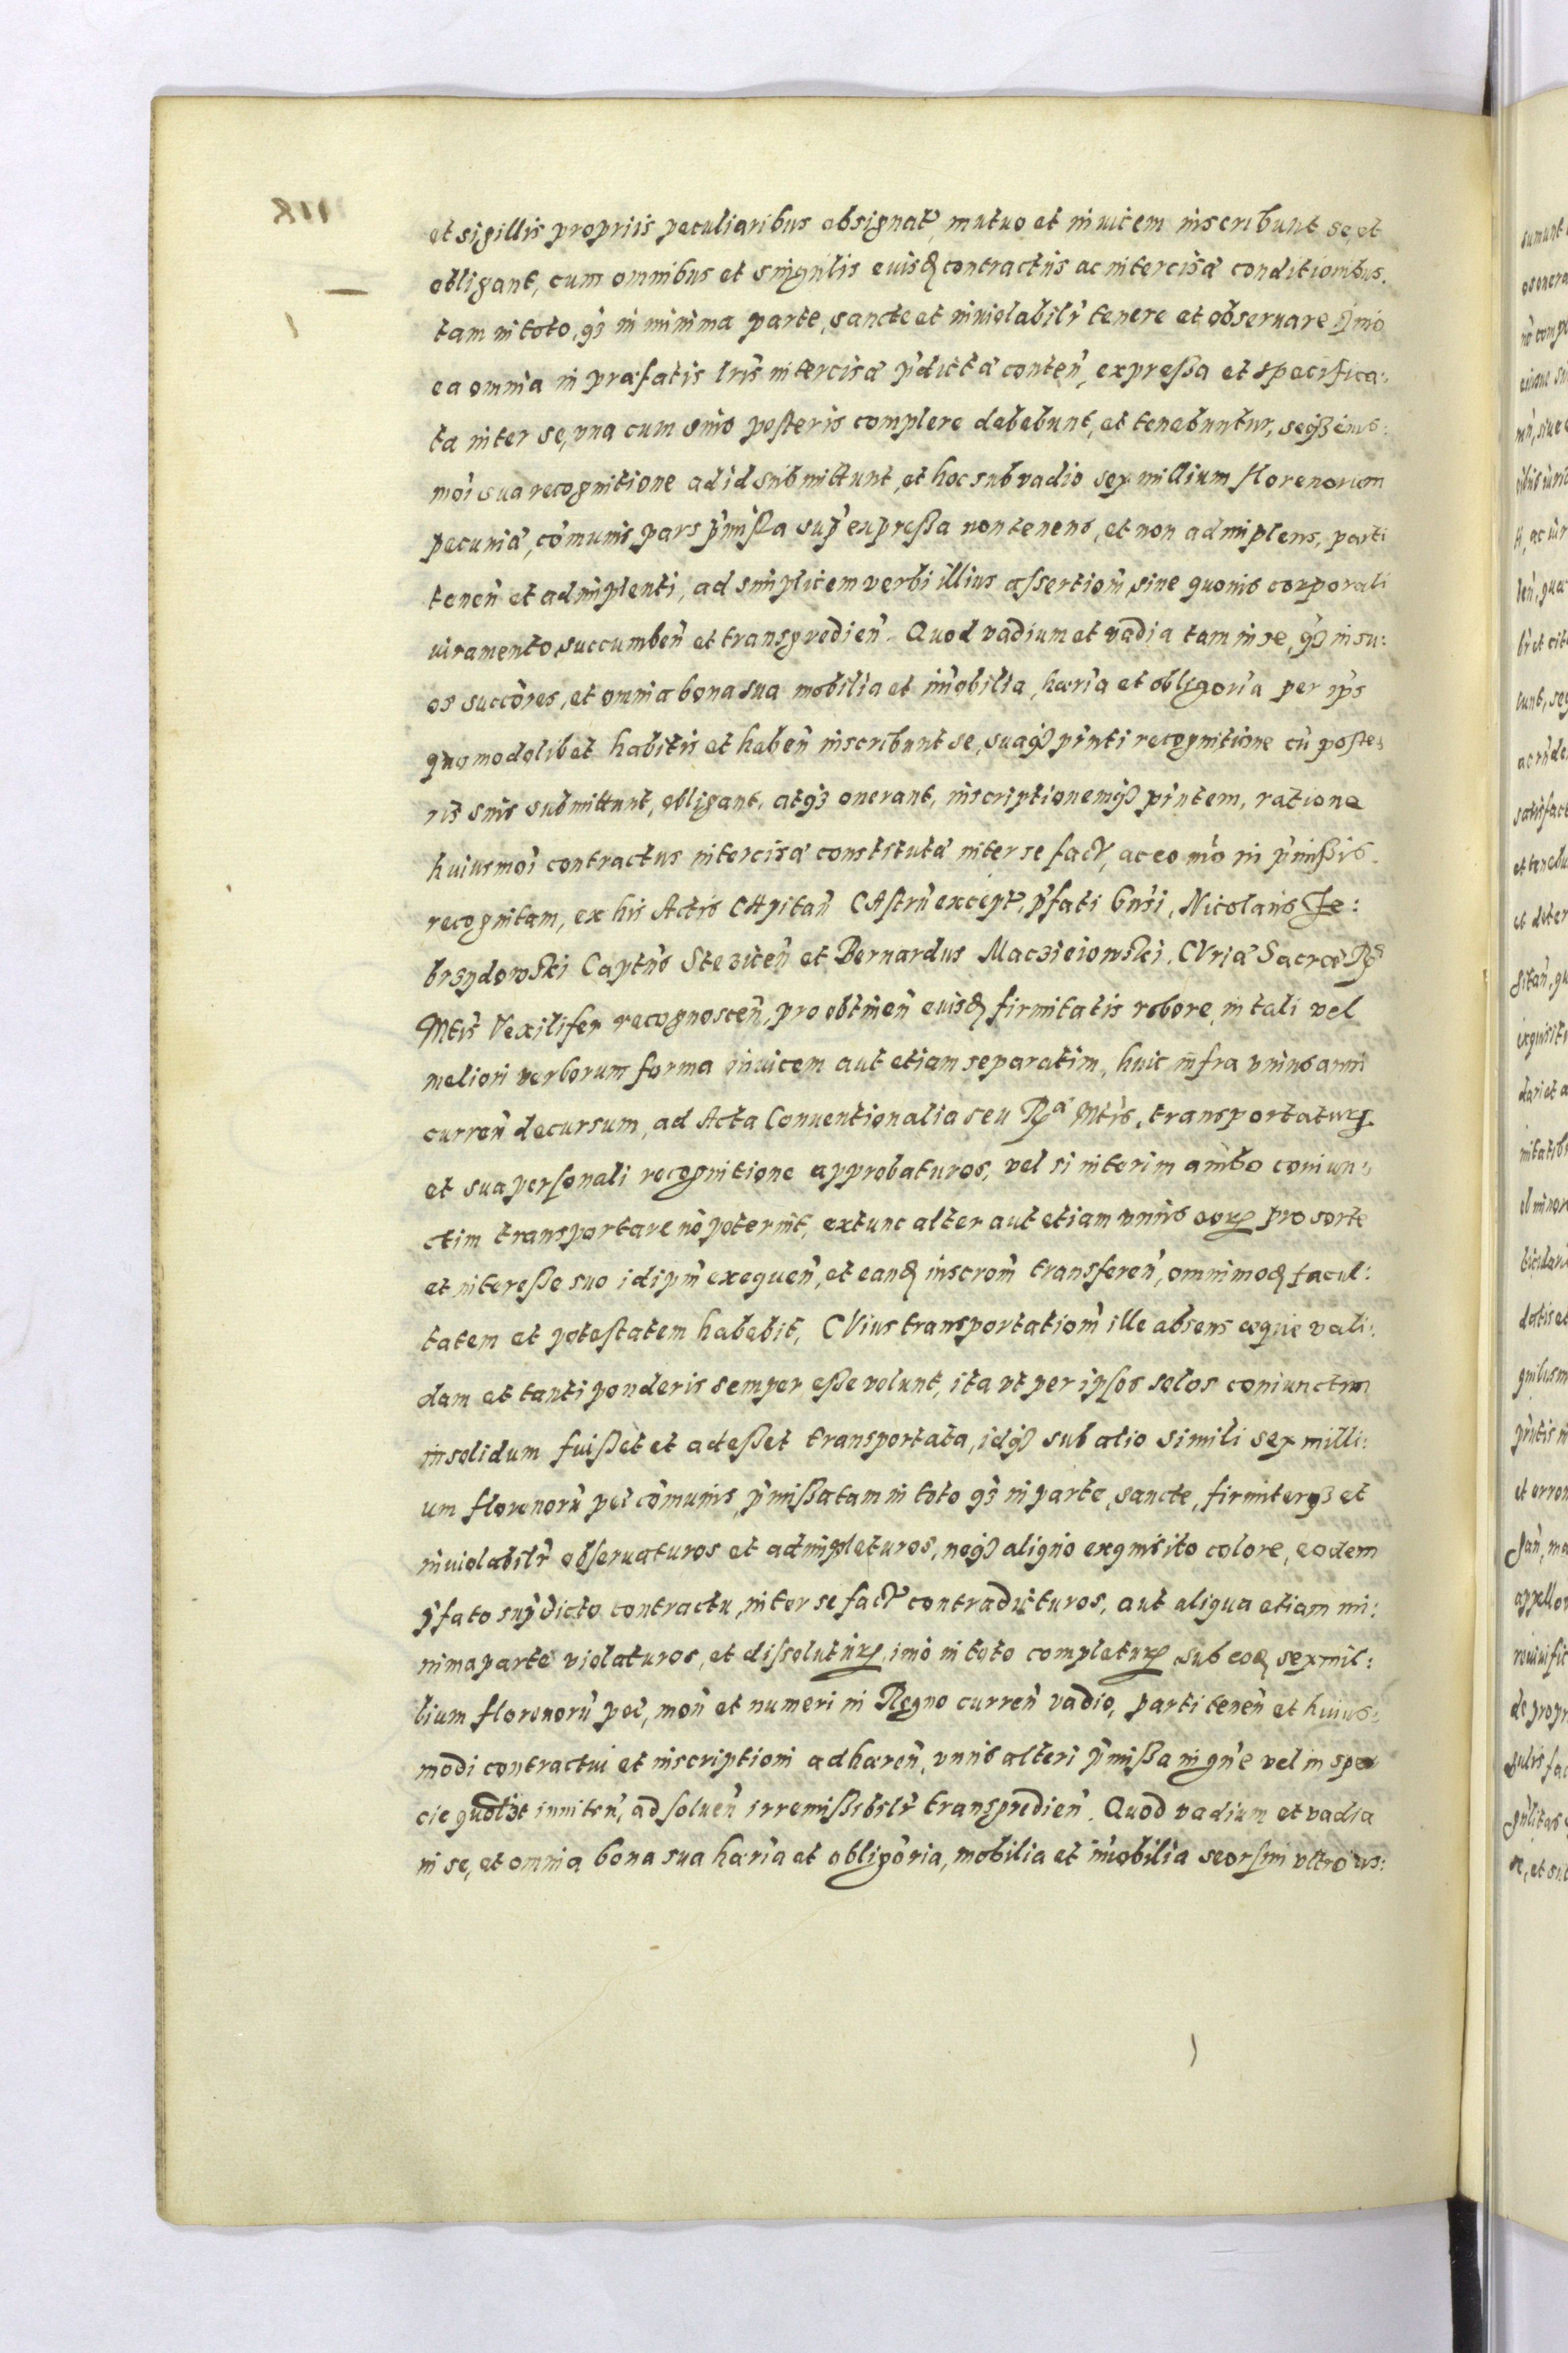 et sigillis propriis peculiaribus obsignat, mutuo et inuicem inscribunt se, et
obligant, cum omnibus et singulis euisd contractus ac intercisæ conditionibus.
tam in toto, q3 in minima parte, sancte et inuiolabilr tenere et obseruare
ea omnia in præfatis lris intercisæ pdictæ conten, expressa et specifica:
ta inter se, vna cum suis posteris complere debebunt, et tenebuntur, seq3 eius:
moi sua recognitione ad id submittunt, et hoc sub vadio sex millium florenorum
pecuniæ, comunis, pars pmissa sup expressa non tenens, et non adimplens, parti
tenen et adimplenti, ad simplicem verbi illius assertiom sine quouis corporali
iuramento succumben et transgredien. Quod vadium et vadia tam in se, q3 in su:
os succores, et omnia bona sua mobilia et imobilia, hæria et obligoria per ips
quomodolibet habitis et haben inscribunt se, suaq3 pinti recognitione cu poste:
ris suis submittunt, obligant, atq3 onerant, inscriptionemq3 pintem, ratione
huiusmoi contractus intercisæ constitutæ inter se fact, ac eo mo in pmissis
recognitam, ex his Actis CApitan CAstrn except, pfati Gnsi, Nicolaus Ze:
brzydowski Captns Stezicen et Bernardus Macziejowski, CVriæ Sacræ Rg
Mtis Vexilifer recognoscen, pro obtinen euisd firmitatis robore, in tali vel
meliori verborum forma inuicem aut etiam separatim, huic infra vnius anni
curren decursum, ad Acta Conuentionalia seu Ræ Mtis, transportaturos
et sua personali recognitione approbaturos, vel si interim ambo coniun:
ctim transportare no poterint, extunc alter aut etiam vnus eorum pro sorte
et interesse suo idipm exequen, et eand inscrom transferen, omnimod facul:
tatem et potestatem habebit, CVius transportatiom ille absens æque vali:
dam et tanti ponderis semper esse volunt, ita vt per ipsos solos coniunctim
insolidum fuisset et adesset transportata, idq3 sub alio simili sex milli:
um florenoru pec comunis, pmissa tam in toto q3 in parte, sancte, firmiterq3 et
inuiolabilr obseruaturos et adimpleturos, neq3 aliquo exquisito colore, eodem
pfato supdicto contractu, inter se fact contradicturos, aut aliqua etiam mi:
nima parte violaturos, et dissoluturos, imo in toto completuros sub eod sex mil:
lium florenoru pec, mon et numeri in Regno curren vadio, parti tenen et huius:
modi contractui et inscriptioni adhæren, vnus alteri pmissa in gne vel in spe
cie quolt inniten, ad soluen irremissibilr transgredien. Quod vadium et vadia
in se, et omnia bona sua hæria et obligoria, mobilia et imobilia seorsim vltro us: